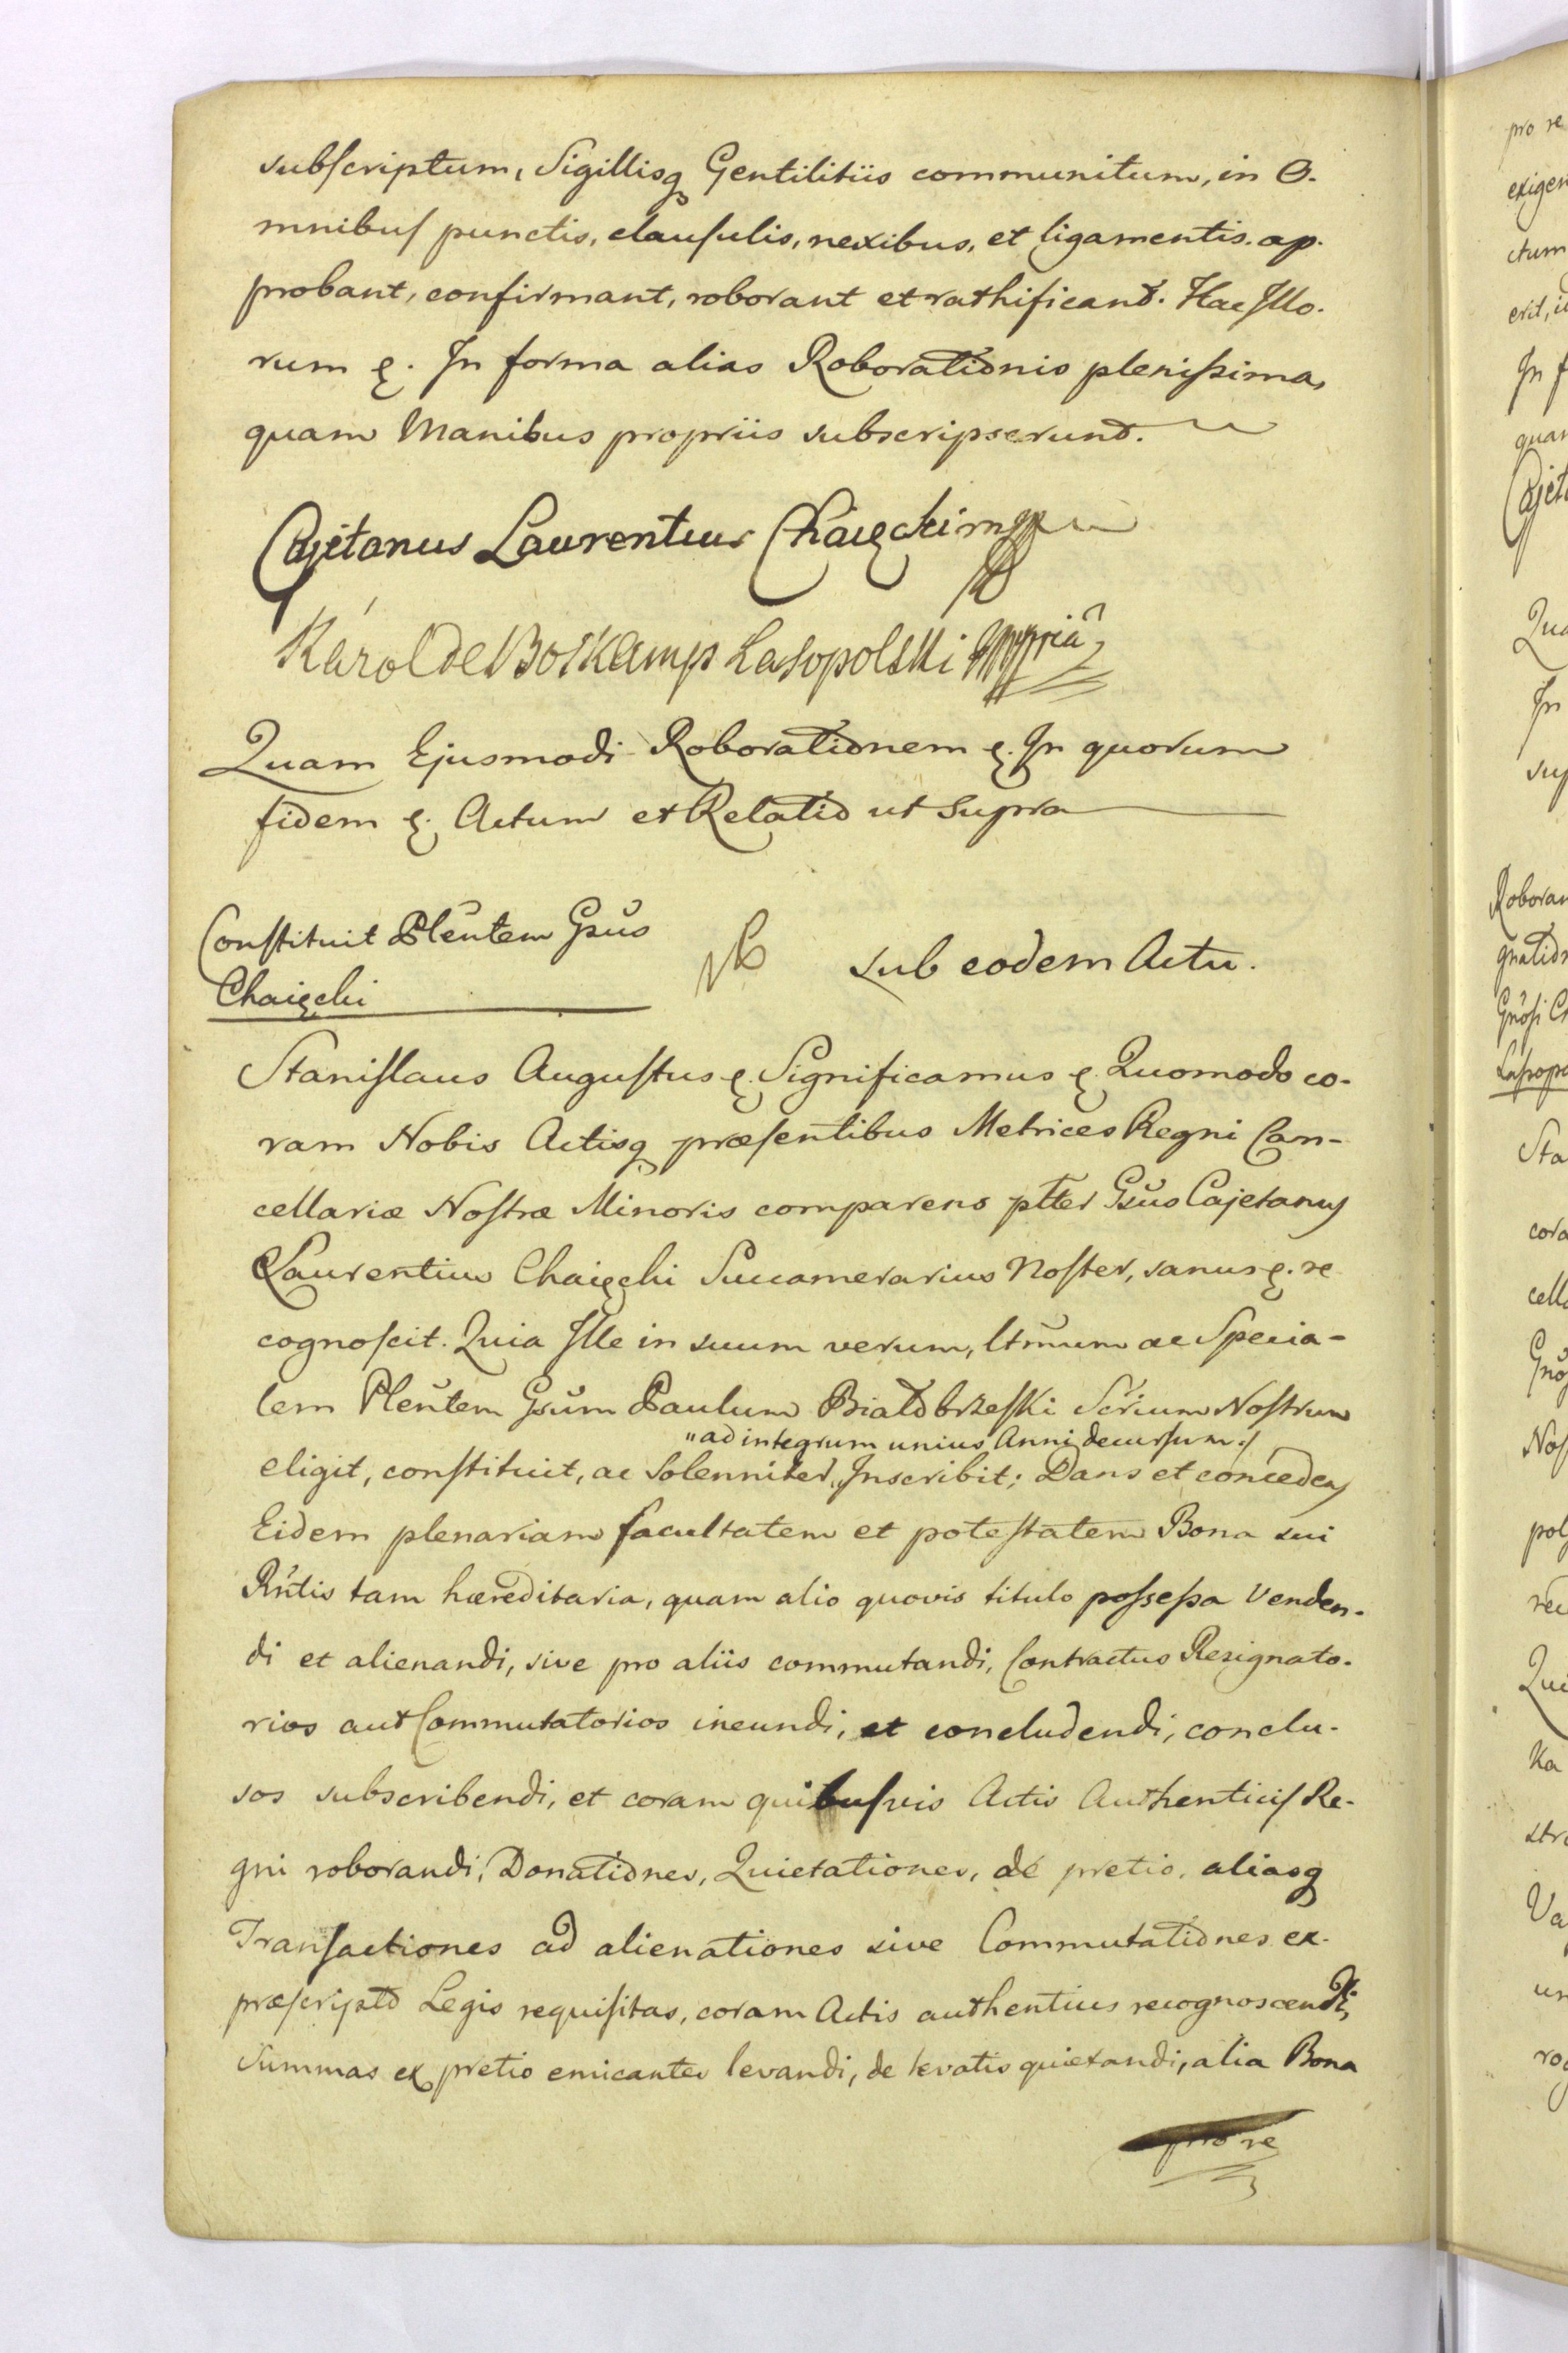 subscriptum, Sigillisq Gentilitiis communitum, in O-
mnibus punctis, clausulis, nexibus, et ligamentis ap-
probant, confirmant, roborant et rathificant. Hac Illo-
rum ę. In forma alias Roborationis plenissima,
quam Manibus propriis subscripserunt.
Cajetanus Laurentius Chaięcki mpp
Karol de Boskamp Lasopolski mppria
Quam Ejusmodi Roborationem ę. In quorum
fidem ę. Actum et Relatio ut Supra
Constituit Plentem Gsus
Chaięcki
sub eodem Actu.
Stanislaus Augustus ę. Significamus ę. Quomodo co-
ram Nobis Actisq præsentibus Metrices Regni Can-
cellariæ Nostræ Minoris comparens pltter Gsus Cajetanus
Laurentius Chaięcki Succamerarius Noster, sanus ę. re
cognoscit. Quia Ille in suum verum, ltmum ac Specia-
lem Plentem Gsum Paulum Białobrzeski Scrium Nostrum
"ad integrum unius Anni decursum:/
eligit, constituit, ac Solenniter, Inscribit; Dans et concedens
Eidem plenariam facultatem et potestatem Bona sui
Rntis tam hæreditaria, quam alio quovis titulo possessa Venden-
di et alienandi, sive pro aliis commutandi, Contractus Resignato-
rios aut Commutatorios ineundi, et concludendi, conclu-
sos subscribendi, et coram quibusvis Actis Authenticis Re-
gni roborandi, Donationes, Quietationes, de pretio, aliasq
Transactiones ad alienationes sive Commutationes ex
præscripto Legis requisitas, coram Actis authenticis recognoscendi,
Summas ex pretio emicantes levandi, de levatis quietandi, alia Bona
pro re
pro re
exigen
ctum
erit,
In f
quam
Cajet
Qua
In
sup
Roboran
gnation
Gnosi Ch
Lasopo
Sta
cora
cella
Nos
pols
Qui
ka